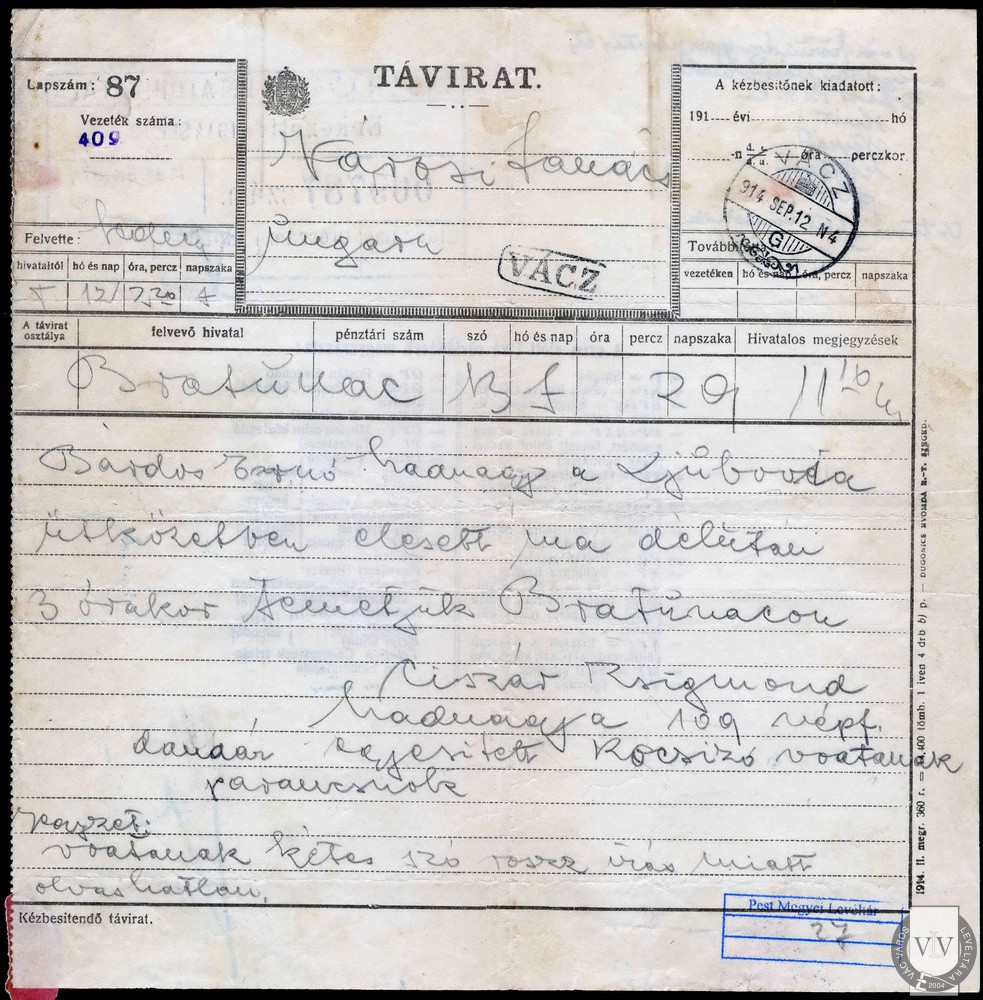 TÁVIRAT.
Lapszám: 87
Vezeték száma:
409
Felvette:
hivataltól hó és nap óra, percz napszaka
12 2,20
Városi tanács
Ungarn
VÁCZ
A kézbesítőnek kiadatott:
191 évi hó
-n d. e. d. u. óra perczkor.
VÁCZ
914 SEP. 12 N4
G
vezetéken hó és nap óra, percz napszaka
A távirat osztálya felvevő hivatal pénztári szám szó hó és nap óra percz napszaka Hivatalos megjegyzések
Bratunac 29 11 10
Bárdos Ernő hadnagy a Ljubovia
ütközetben elesett ma délután
3 órakor temetjük Bratunacon
Ciszár Zsigmond
hadnagy a 109 népf.
dandár egyesített kocsizó voatanak
parancsnok
Jegyzet:
voatanak kétes szó rossz írás miatt
olvashatlan.
Kézbesitendő távirat.
1914. II. megr. 360 r. = 400 tömb. 1 iven 4 drb b) p. — DUGONICS NYOMDA R.-T. SZEGED.
Pest Megyei Levéltár
27
VÁC VÁROS LEVÉLTÁRA
2004